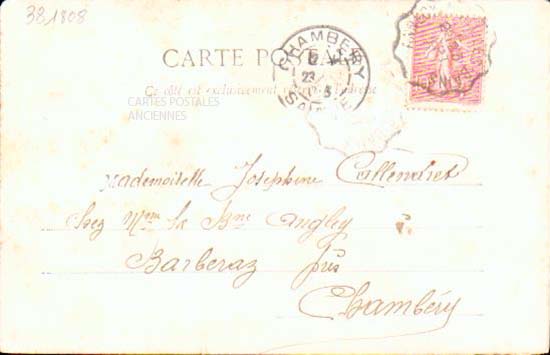 381808
CARTE POSTALE
Ce côté est exclusivement réservé à l'adresse
CARTES POSTALES
ANCIENNES
CHAMBERY
23
SAVOIE
Mademoiselle Josephine Callendret
chez Mme la Bne Angley
Barberaz près
Chambéry